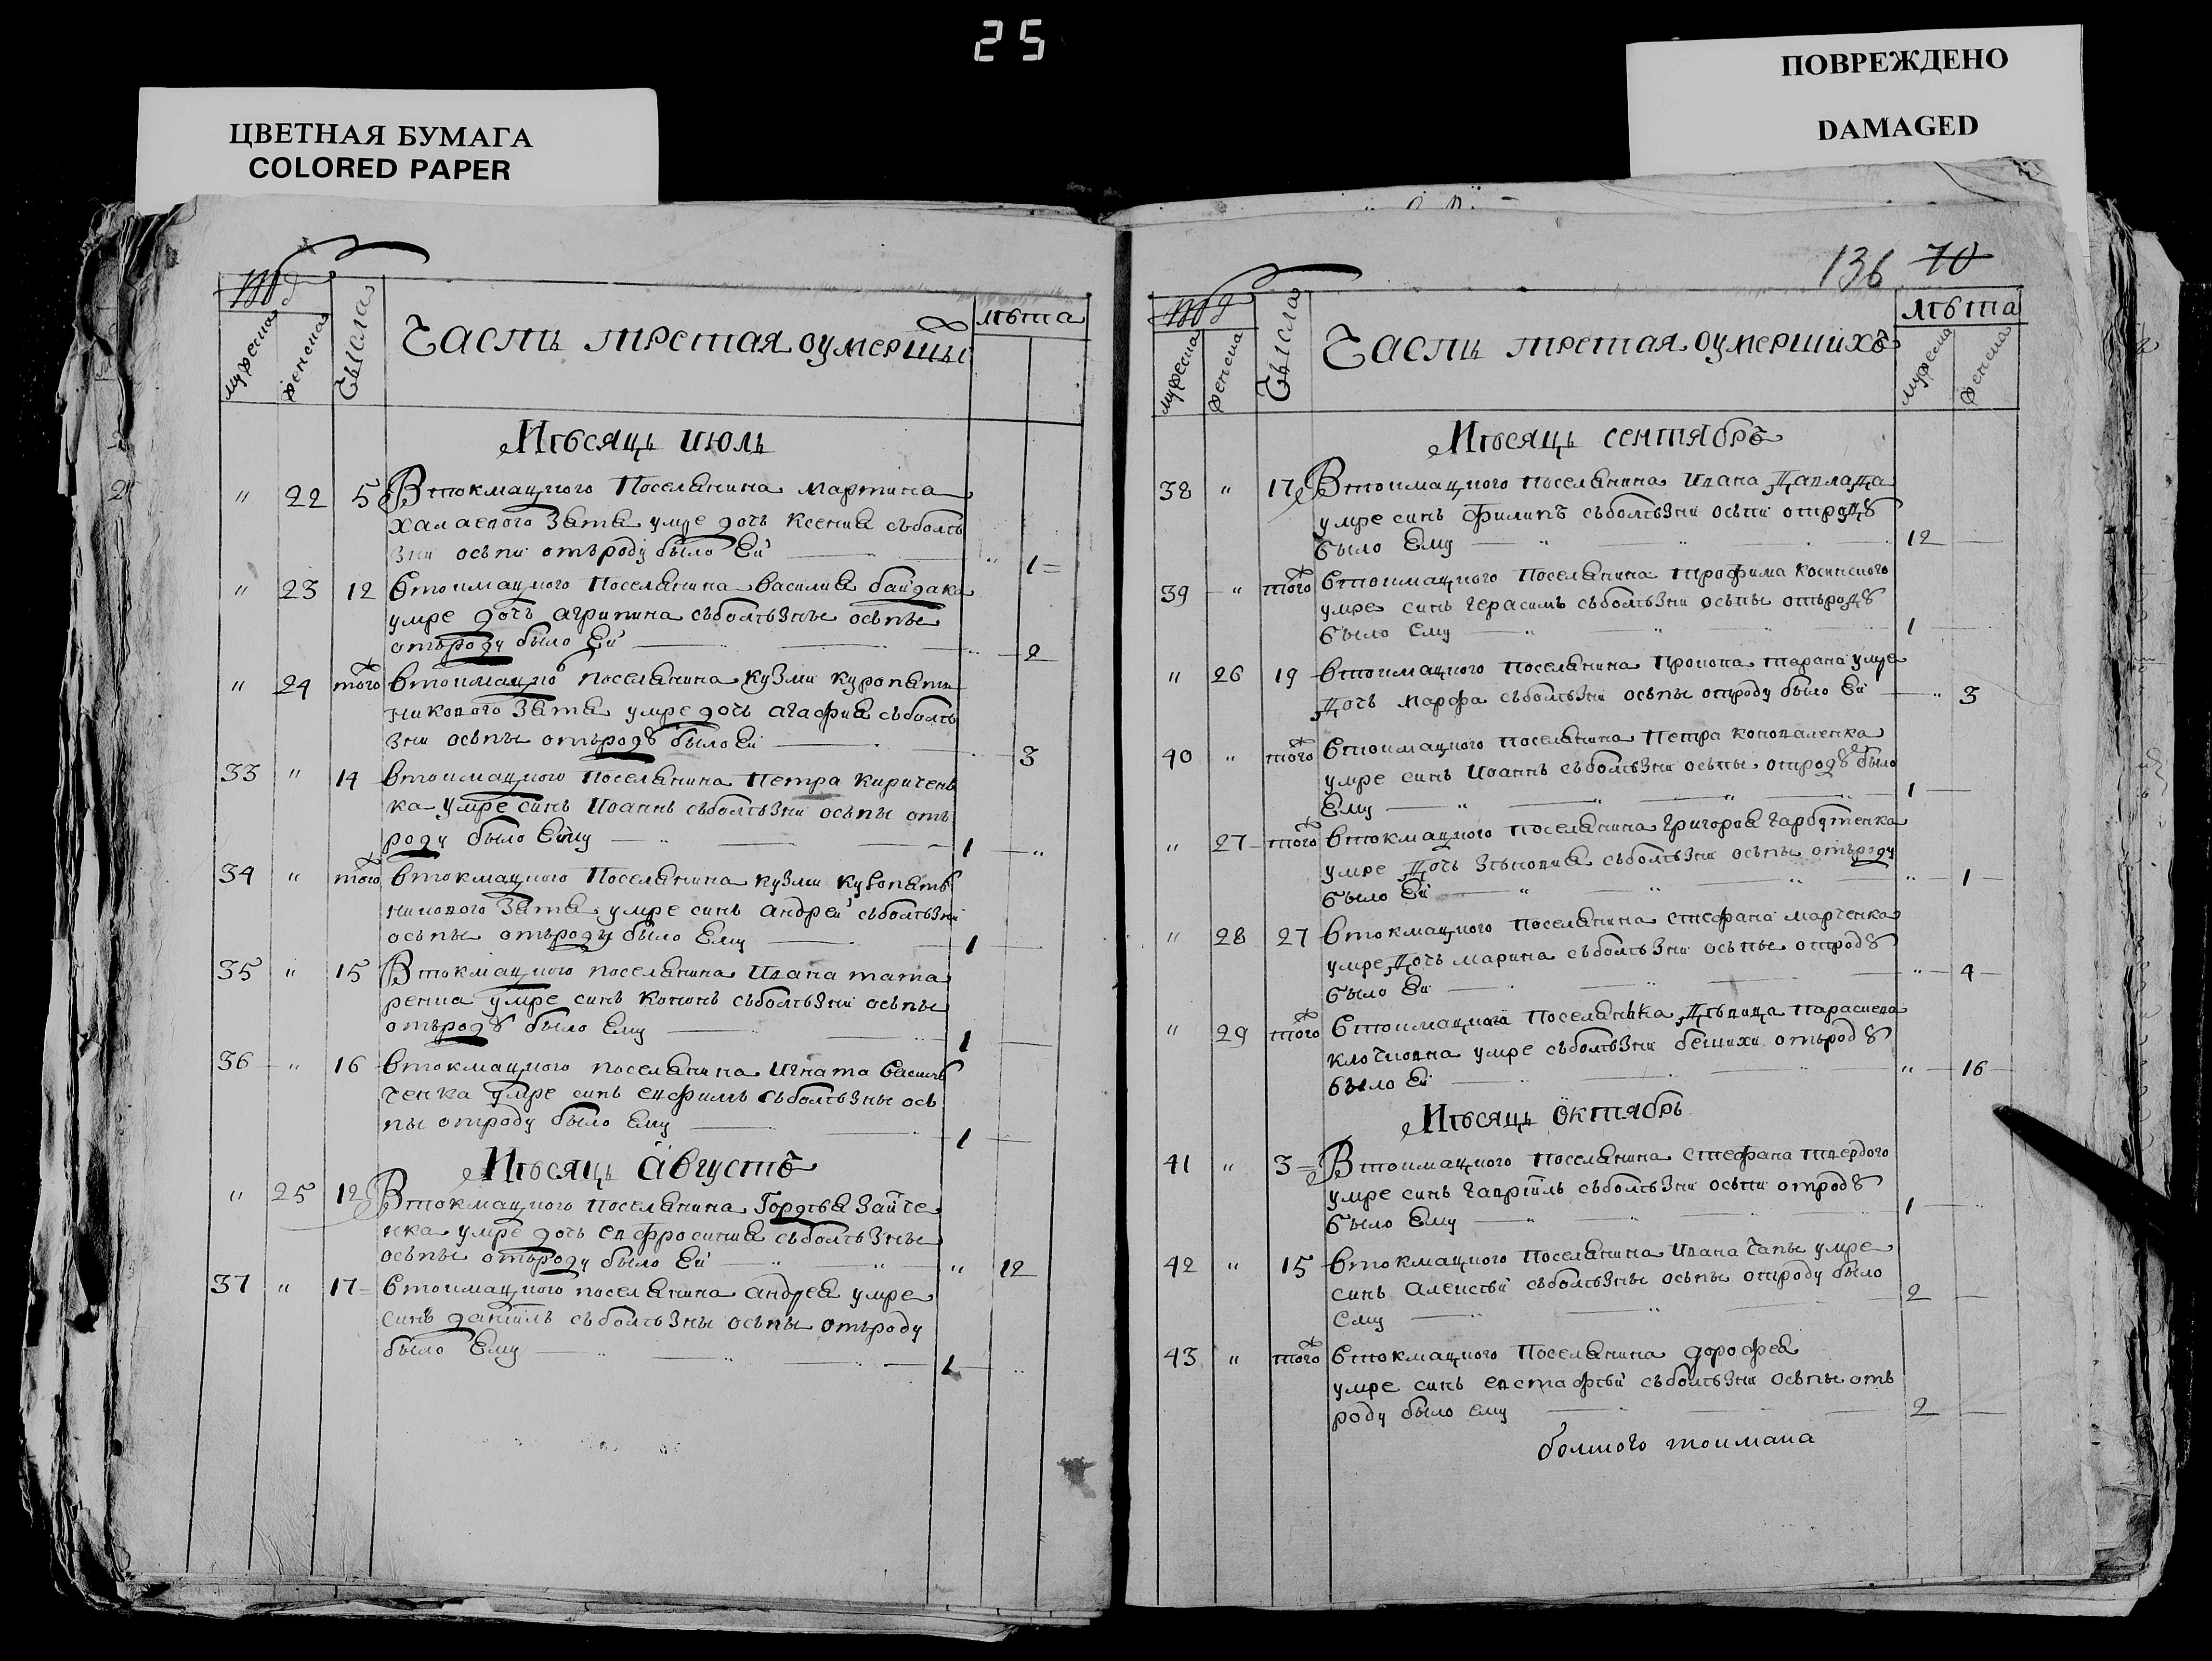 25
ЦВЕТНАЯ БУМАГА
COLORED PAPER
ПОВРЕЖДЕНО
DAMAGED
мужеска
женска
Числа
Часть третая оумершы
лѣта
Мѣсяць июль
" 22 5 Втокмацкого Поселянина мартина
халаевого Зятя умре дочь Ксения съболѣ
зни осьпи отъроду было Ей " 1
" 23 12 втокмацкого Поселянина василия байдака
умре дочь агрипина съболѣзны осьпы
отъроду было Ей " 2
" 24 того втокмацко поселянина кузми куропатъ
никового Зятя умре дочь агафия съболѣ
зни осьпы отъродꙋ было Ей 3
33 " 14 втокмацкого поселянина Петра киричень
ка умре синь Иоаннь съболѣзни осьпы отъ
роду было Ему 1 "
34 " того втокмацкого Поселянина кузми куропатъ
никового Зятя умре синь андрей съболѣзни
осьпы отъроду было Ему 1
35 " 15 Втокмацкого поселянина Ивана тата
ренка умре синь кононь съболѣзни осьпы
отъродꙋ было Ему 1
36 " 16 втокмацкого поселянина игната василь
ченка умре синь ефимь съболѣзны ось
пы отроду было Ему 1
Мѣсяць августъ
" 25 12 Втокмацкого поселянина Гордѣя Зайче
нка умре дочь евфросиния съболѣзны
осьпы отъроду было Ей " 12
37 " 17 втокмацкого поселянина андрея умре
синь даниль съболѣзны осьпы отъроду
было Ему 1 "
136 70
мужеска
женска
Числа
Часть третая оумершихъ
лѣта
мужеска
женска
Мѣсяць сентябръ
38 " 17 Втокмацкого поселянина Ивана Давлада
умре синь филипъ съболѣзни осьпи отродꙋ
было Ему " 12
39 " того втокмацкого Поселянина трофима косинского
умре синь герасимь съболѣзни осьпы отъродꙋ
было Ему " 1
" 26 19 втокмацкого поселянина Прокопа тарана умре
Дочь Марфа съболѣзни осьпы отроду было Ей " 3
40 " того втокмацкого поселянина Петра коноваленка
умре синь Иоаннь съболѣзни осьпы отродꙋ было
Ему " 1
" 27 того втокмацкого поселянина григория гарбутенка
умре Дочь Зѣновия съболѣзни осьпы отъроду
было Ей " 1
" 28 27 втокмацкого поселянина стефана марченка
умре Дочь марина съболѣзни осьпы отродꙋ
было Ей " 4
" 29 того втокмацкого поселянка Дѣвица Параскева
клочковна умре съболѣзни бешихи отъродꙋ
было Ей " 16
Мѣсяць октябрь
41 " 3 Втокмацкого поселянина стефана твердого
умре синь гавріиль съболѣзни осьпи отродꙋ
было Ему " 1
42 " 15 втокмацкого Поселянина Ивана чапы умре
синь алексѣй съболѣзны осьпы отроду было
Ему " 2
43 " того втокмацкого Поселянина дорофея
умре синь евстафѣй съболѣзни осьпы отъ
роду было ему 2
болшого токмака